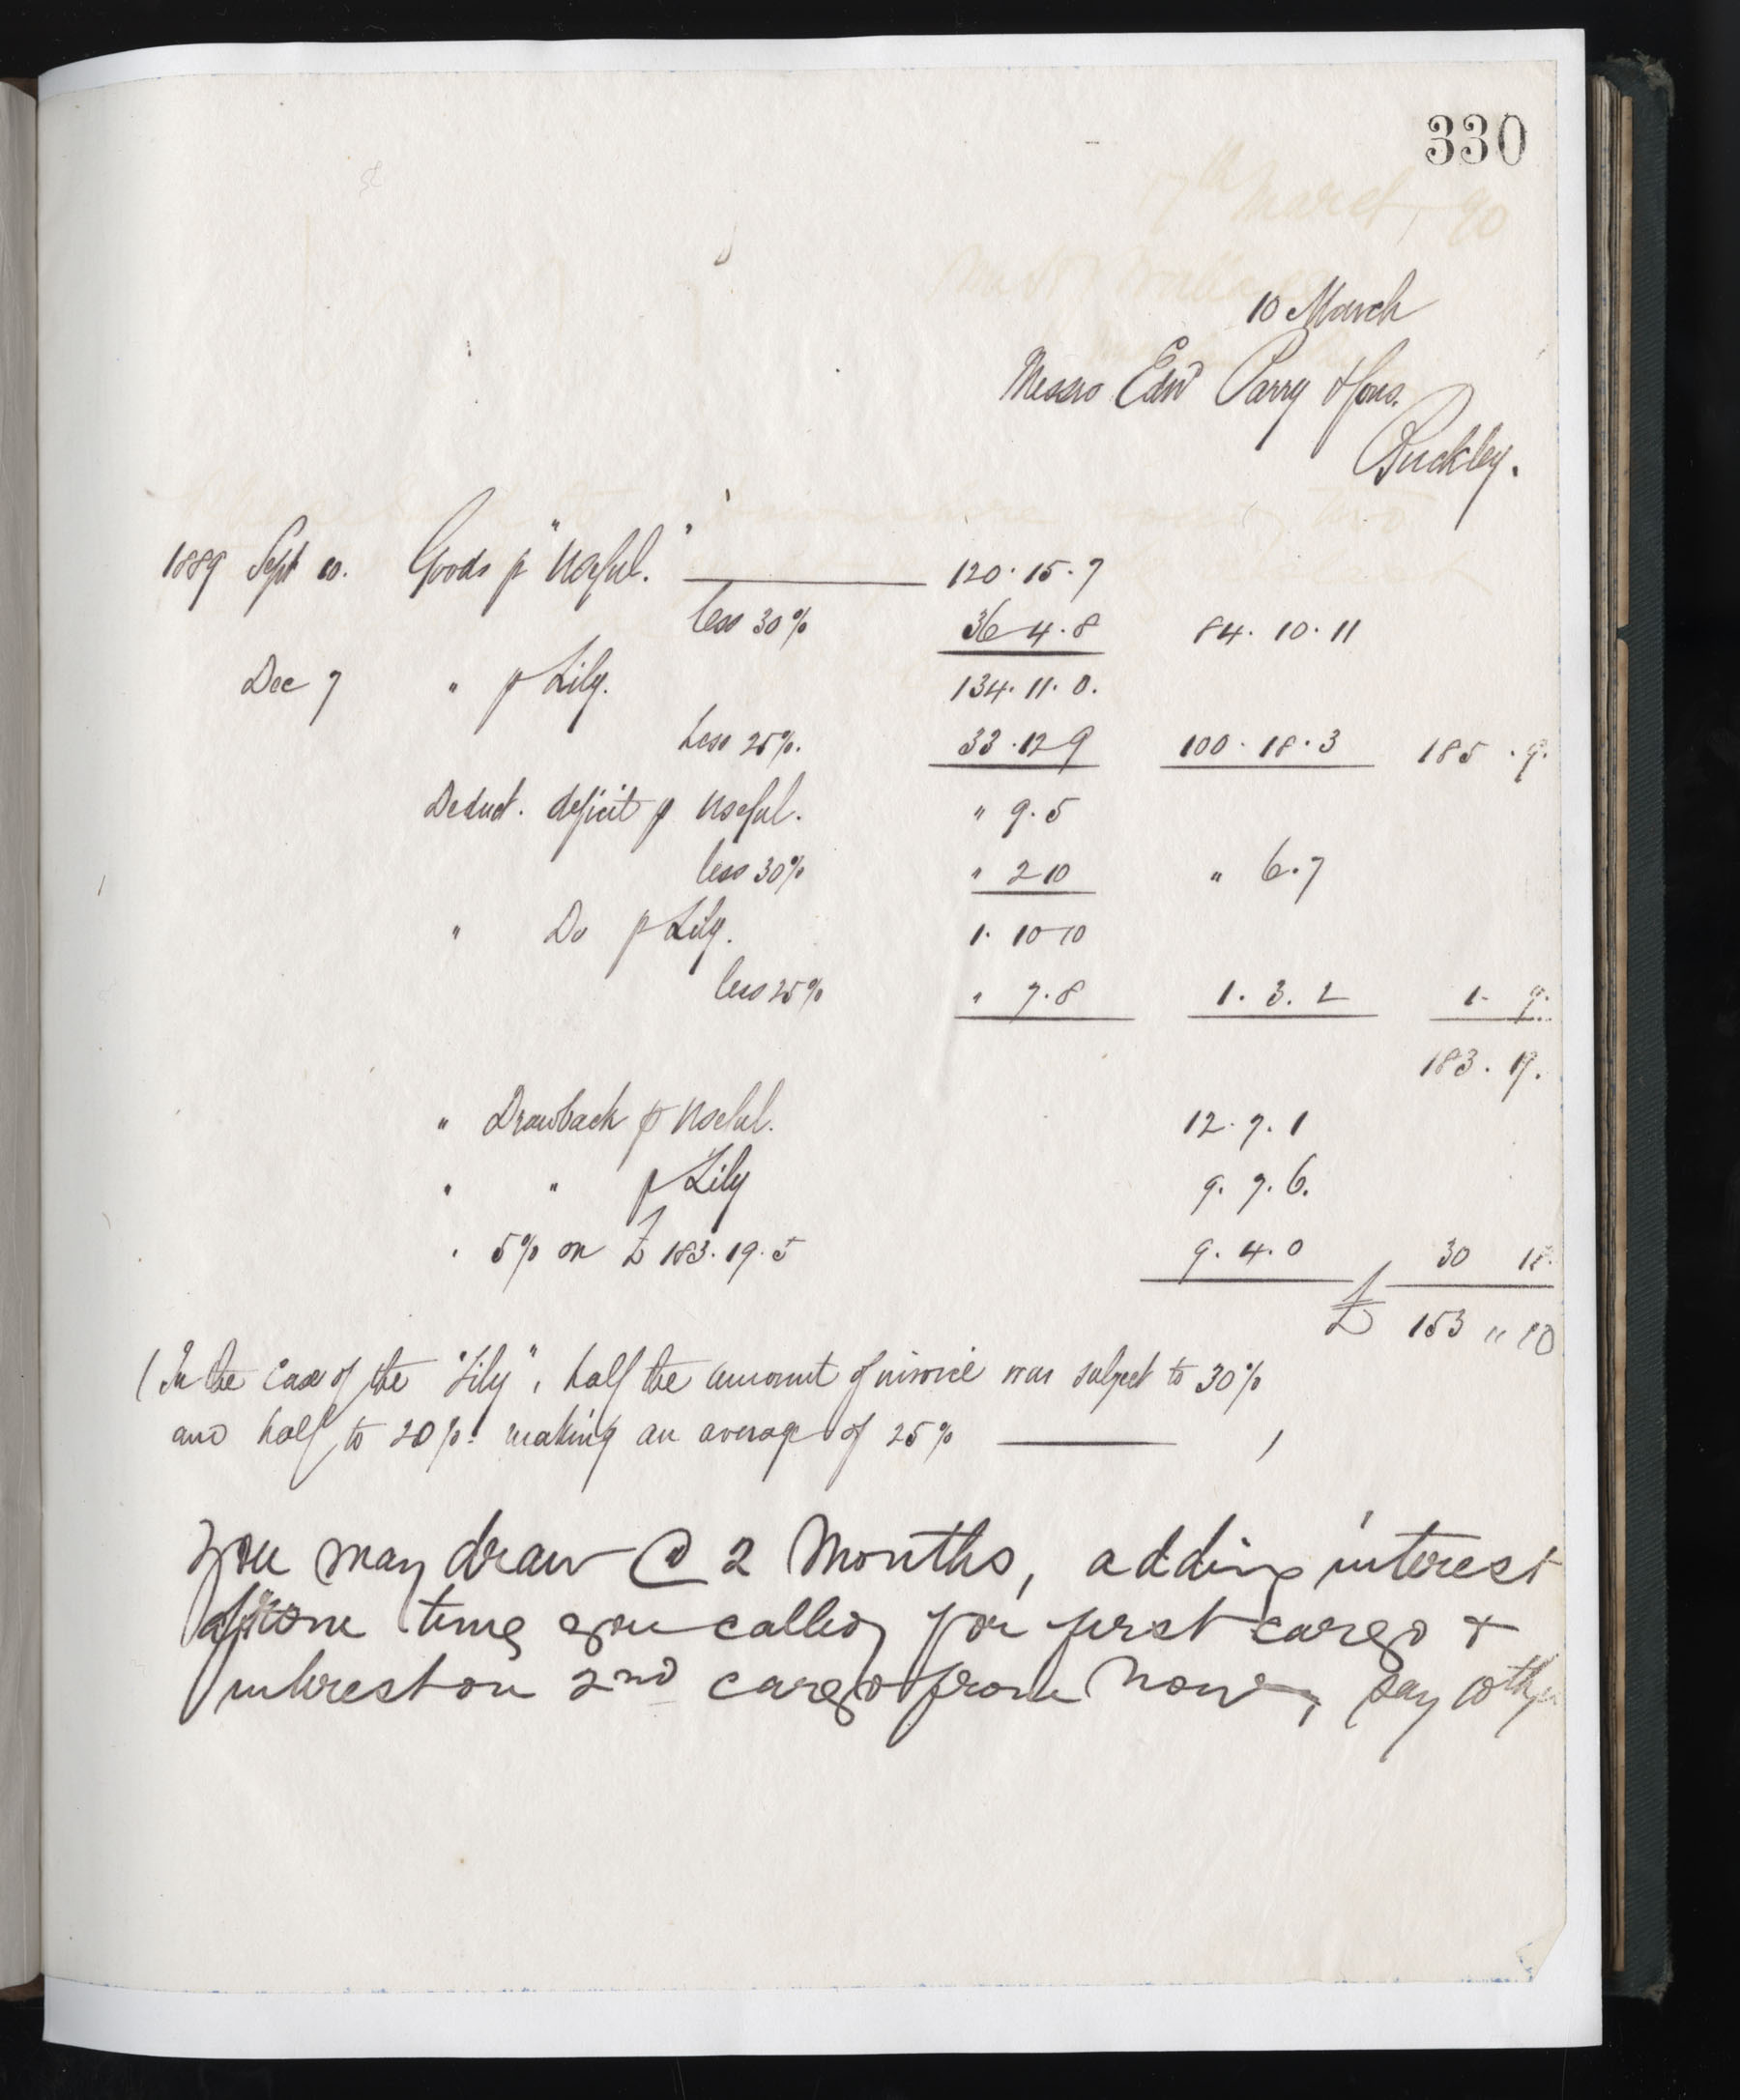 330
10 March
Messrs Edwd Parry & Sons.
Buckley.
1889 Sept 10. Goods p "Useful." 120.15.7
less 30% 36 4.8 84.10.11
Dec 7 " p Lily. 134.11.0.
Less 25%. 33.12 9 100.18.3 185 . 9.
Deduct. deficit p Useful. " 9.5
less 30% " 2 10 " 6.7
" Do p Lily. 1. 10 10
less 25% " 7.8 1.3.2 1. 9.
183. 19.
" Drawback p Useful. 12.7.1
" " p Lily 9.7.6.
" 5% on £183.19.5 9.4.0 30 18.
£ 153 " 10
(In the case of the "Lily", half the amount of invoice was subject to 30%
and half to 20%. making an average of 25% )
you may draw @ 2 Months, adding interest
from time you called for first cargo &
interest on 2nd cargo from now, say 10th